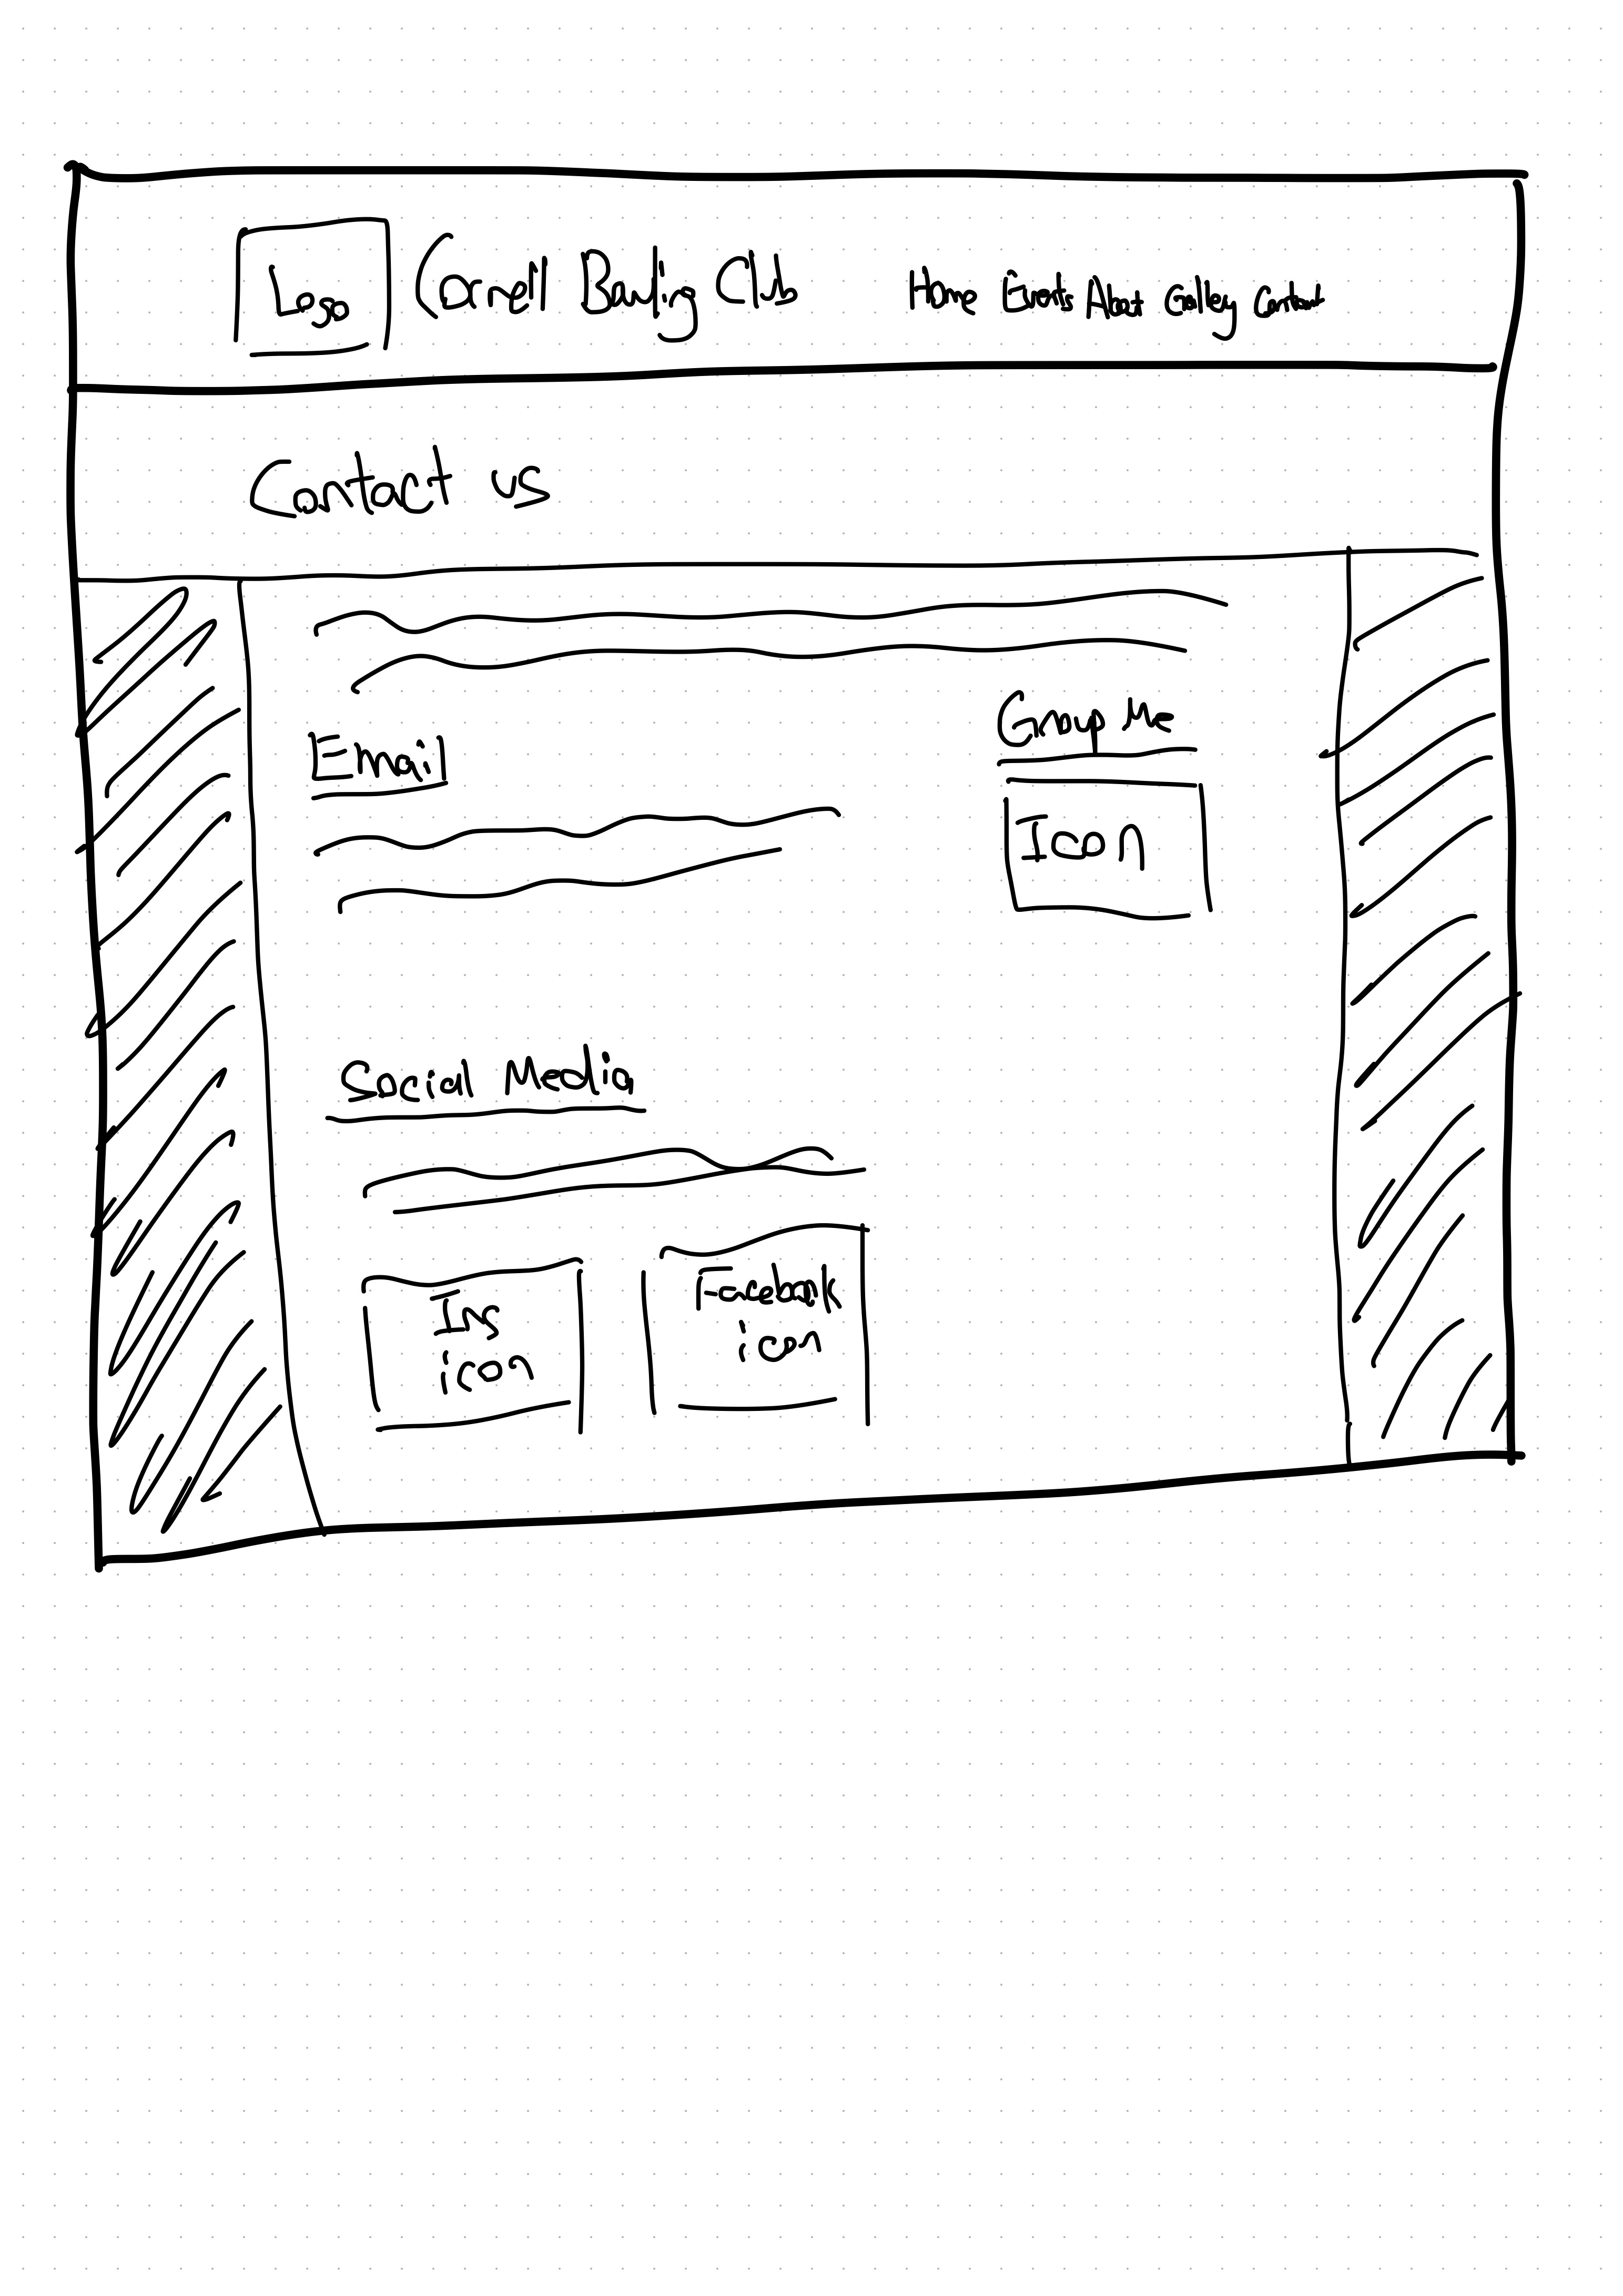 Logo
Cornell Bowling Club
Home Events About Gallery Contact
Contact us
Email
Group Me
Icon
Social Media
Ins
icon
Facebook
icon